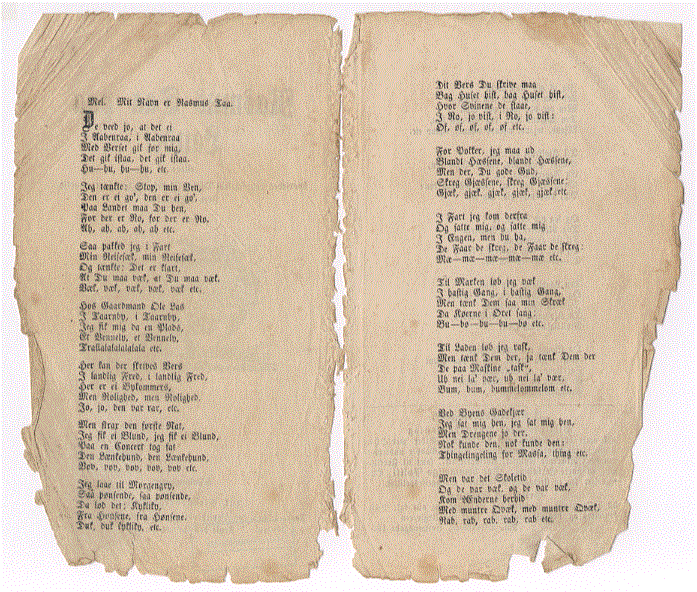 Mel. Mit Navn er Rasmus Taa.
De veed jo, at det ei
I Aabenraa, i Aabenraa
Med Verset gik for mig,
Det gik istaa, det gik istaa.
Hu—hu, hu—hu, etc.
Jeg tænkte: Stop, min Ven,
Den er ei go', den er ei go',
Paa Landet maa Du hen,
For der er Ro, for der er Ro.
Ah, ah, ah, ah, ah etc.
Saa pakked jeg i Fart
Min Reisesæk, min Reisesæk,
Og tænkte: Det er klart,
At Du maa væk, at Du maa væk.
Væk, væk, væk, væk, væk etc.
Hos Gaardmand Ole Las
I Taarnby, i Taarnby,
Jeg fik mig da en Plads,
Et Vennely, et Vennely,
Trallalalalalalala etc.
Her kan der skrives Vers
I landlig Fred, i landlig Fred,
Her er ei Bykommers,
Men Rolighed, men Rolighed,
Jo, jo, den var rar, etc.
Men strax den første Nat,
Jeg fik ei Blund, jeg fik ei Blund,
Paa en Concert tog fat
Den Lænkehund, den Lænkehund,
Vov, vov, vov, vov, vov etc.
Jeg laae til Morgengry,
Saa pønsende, saa pønsende,
Da lød det: Kykliky,
Fra Hønsene, fra Hønsene.
Duk, duk kykliky, etc.
Dit Vers Du skrive maa
Bag Huset hist, bag Huset hist,
Hvor Svinene de staae,
I Ro, jo vist, i Ro, jo vist:
Of, of, of, of, of etc.
For Pokker, jeg maa ud
Blandt Hæssene, blandt Hæssene,
Men der, Du gode Gud,
Skreg Gjæssene, skreg Gjæssene:
Gjæk, gjæk, gjæk, gjæk, gjæk etc.
I Fart jeg kom derfra
Og satte mig, og satte mig
I Engen, men hu ha,
De Faar de skreg, de Faar de skreg:
Mæ—mæ—mæ—mæ—mæ etc.
Til Marken løb jeg væk
I hastig Gang, i hastig Gang,
Men tænk Dem saa min Skræk
Da Koerne i Øret sang:
Bu—bo—bu—bu—bo etc.
Til Laden løb jeg rask,
Men tænk Dem der, ja tænk Dem der
De paa Maskine „task“,
Uh nei la' vær, uh nei la' vær,
Bum, bum, bummelommelom etc.
Ved Byens Gadekjær
Jeg sat mig hen, jeg sat mig hen,
Men Drengene jo der,
Nok kunde den, nok kunde den:
Thingelingeling for Masja, thing etc.
Men var det Skoletid
Og de var væk, og de var væk,
Kom Ænderne herhid
Med muntre Qvæk, med muntre Qvæk,
Rab, rab, rab, rab, rab etc.